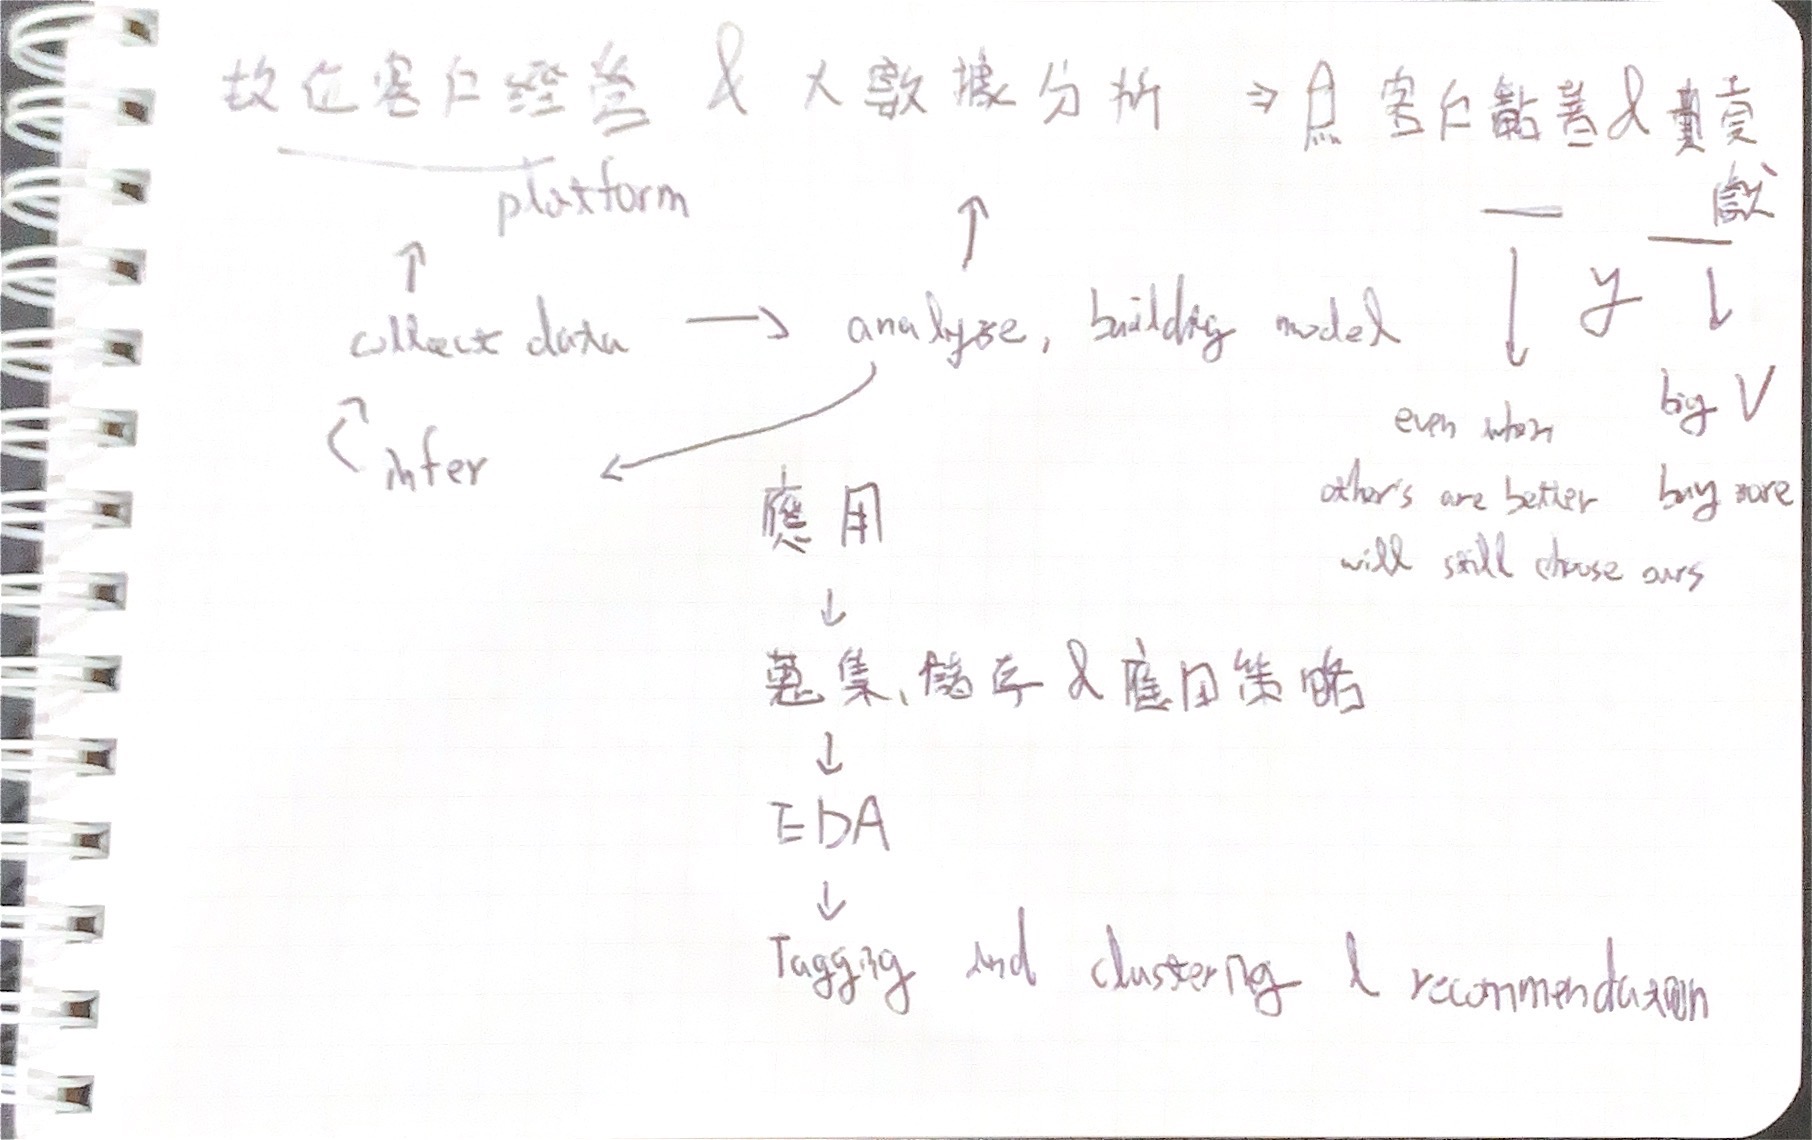 客戶經營 & 大數據分析 ⇒ 客戶黏著 & 貢
獻
platform
↑ ↑
collect data → analyze, building model
y
infer
big V
even when
other's are better buy more
will still choose ours
應用
↓
蒐集、儲存 & 應用策略
↓
EDA
↓
Tagging and clustering & recommendation